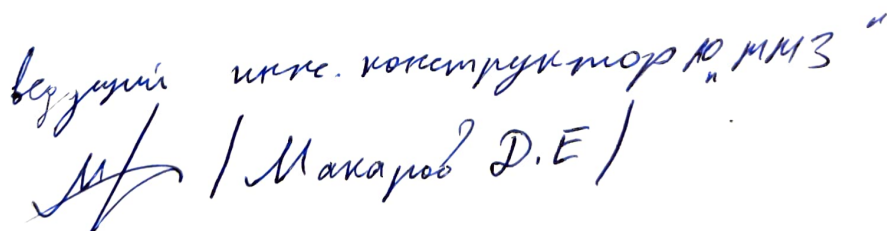 ведущий инж. конструктор "ММЗ"
/Макаров Д.Е/